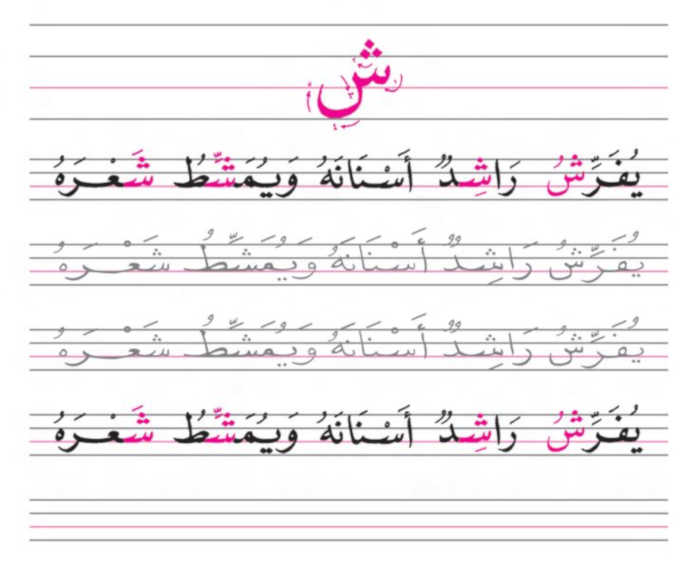 شِ
يُفَرِّشُ رَاشِدٌ أَسْنَانَهُ وَيُمَشِّطُ شَعْرَهُ
يُفَرِّشُ رَاشِدٌ أَسْنَانَهُ وَيُمَشِّطُ شَعْرَهُ
يُفَرِّشُ رَاشِدٌ أَسْنَانَهُ وَيُمَشِّطُ شَعْرَهُ
يُفَرِّشُ رَاشِدٌ أَسْنَانَهُ وَيُمَشِّطُ شَعْرَهُ